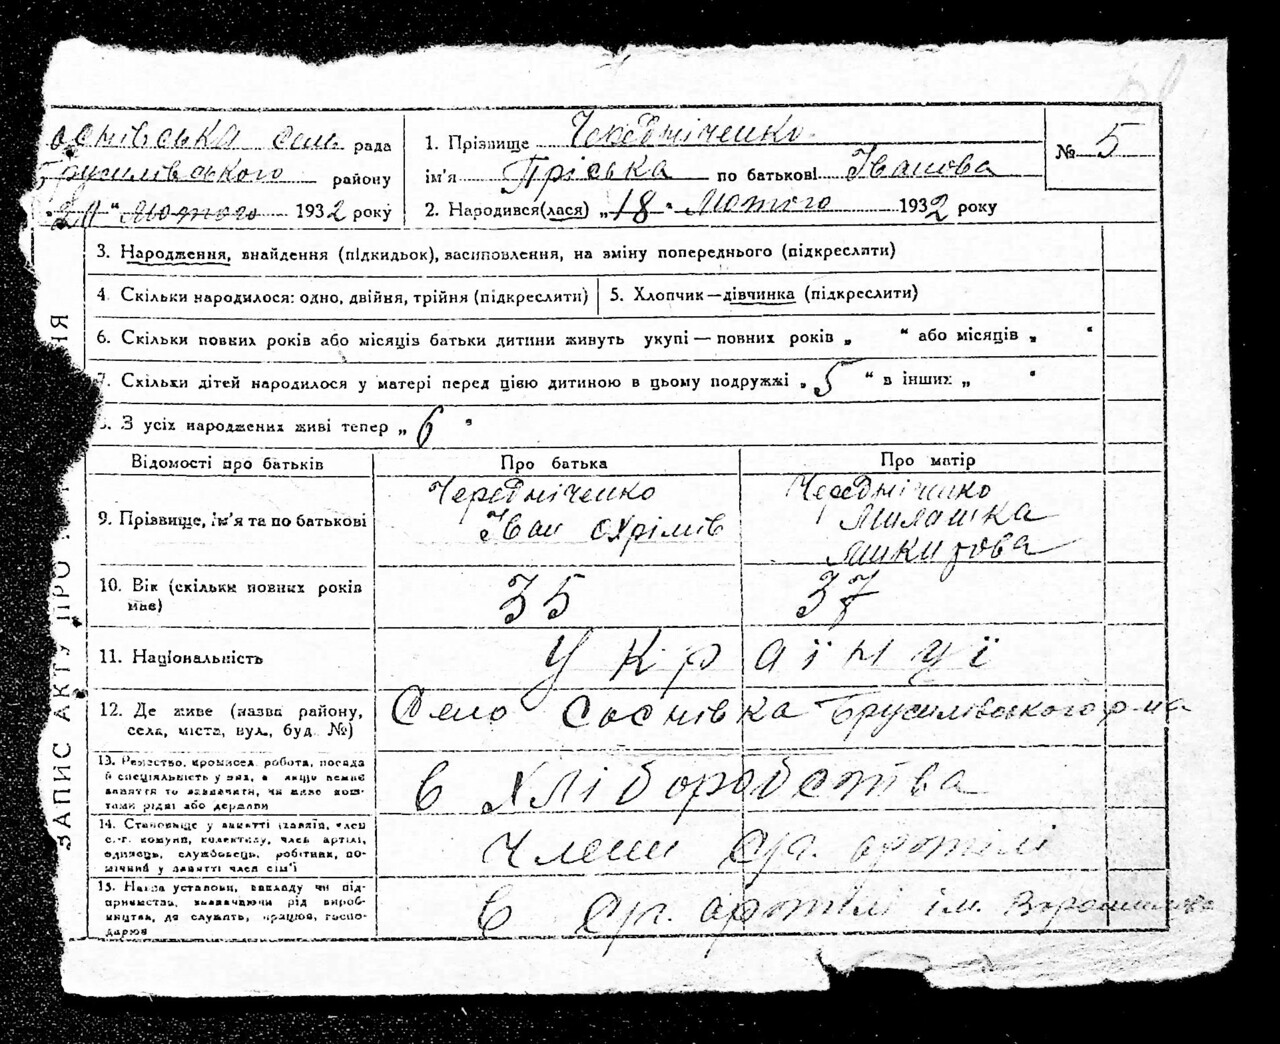 оснівська сель рада
Брусилівського району
"20" Лютого 1932 року
1. Прізвище Чередніченко
ім'я Пріська по батькові Іванова
2. Народився(лася) „18" Лютого 1932 року
№ 5
3. Народження, внайдення (підкидьок), засиповлення, на зміну попереднього (підкреслити)
4. Скільки народилося: одно, двійня, трійня (підкреслити)
5. Хлопчик—дівчинка (підкреслити)
6. Скільки повних років або місяців батьки дитини живуть укупі — повних років „ " або місяців „ "
7. Скільки дітей народилося у матері перед цією дитиною в цьому подружжі „5" в інших „ "
8. З усіх народжених живі тепер „6"
Відомості про батьків
Про батька
Про матір
9. Прізвище, ім'я та по батькові
Чередніченко
Іван Охрімів
Чередніченко
Милашка
Микитова
10. Вік (скільки повних років
має)
35
37
11. Національність
Українці
12. Де живе (назва району,
села, міста, вул., буд. №)
Село Соснівка Брусилівського р-на
13. Ремество, промисел, робота, посада
й спеціяльність у них, а якщо немає
заняття то зазначити, чи живе кош-
тами рідні або держави
в хліборобства
14. Становище у занятті (хазяїн, член
с.-г. комуни, колективу, член артілі,
одинець, службовець, робітник, по-
мічний у занятті член сім'ї
Члени с/г. артілі
15. Назва установи, закладу чи під-
приємства, зазначаючи рід вироб-
ництва, де служать, працює, госпо-
дарює
в с/г. артілі ім. Ворошилова
ЗАПИС АКТУ ПРО
НЯ